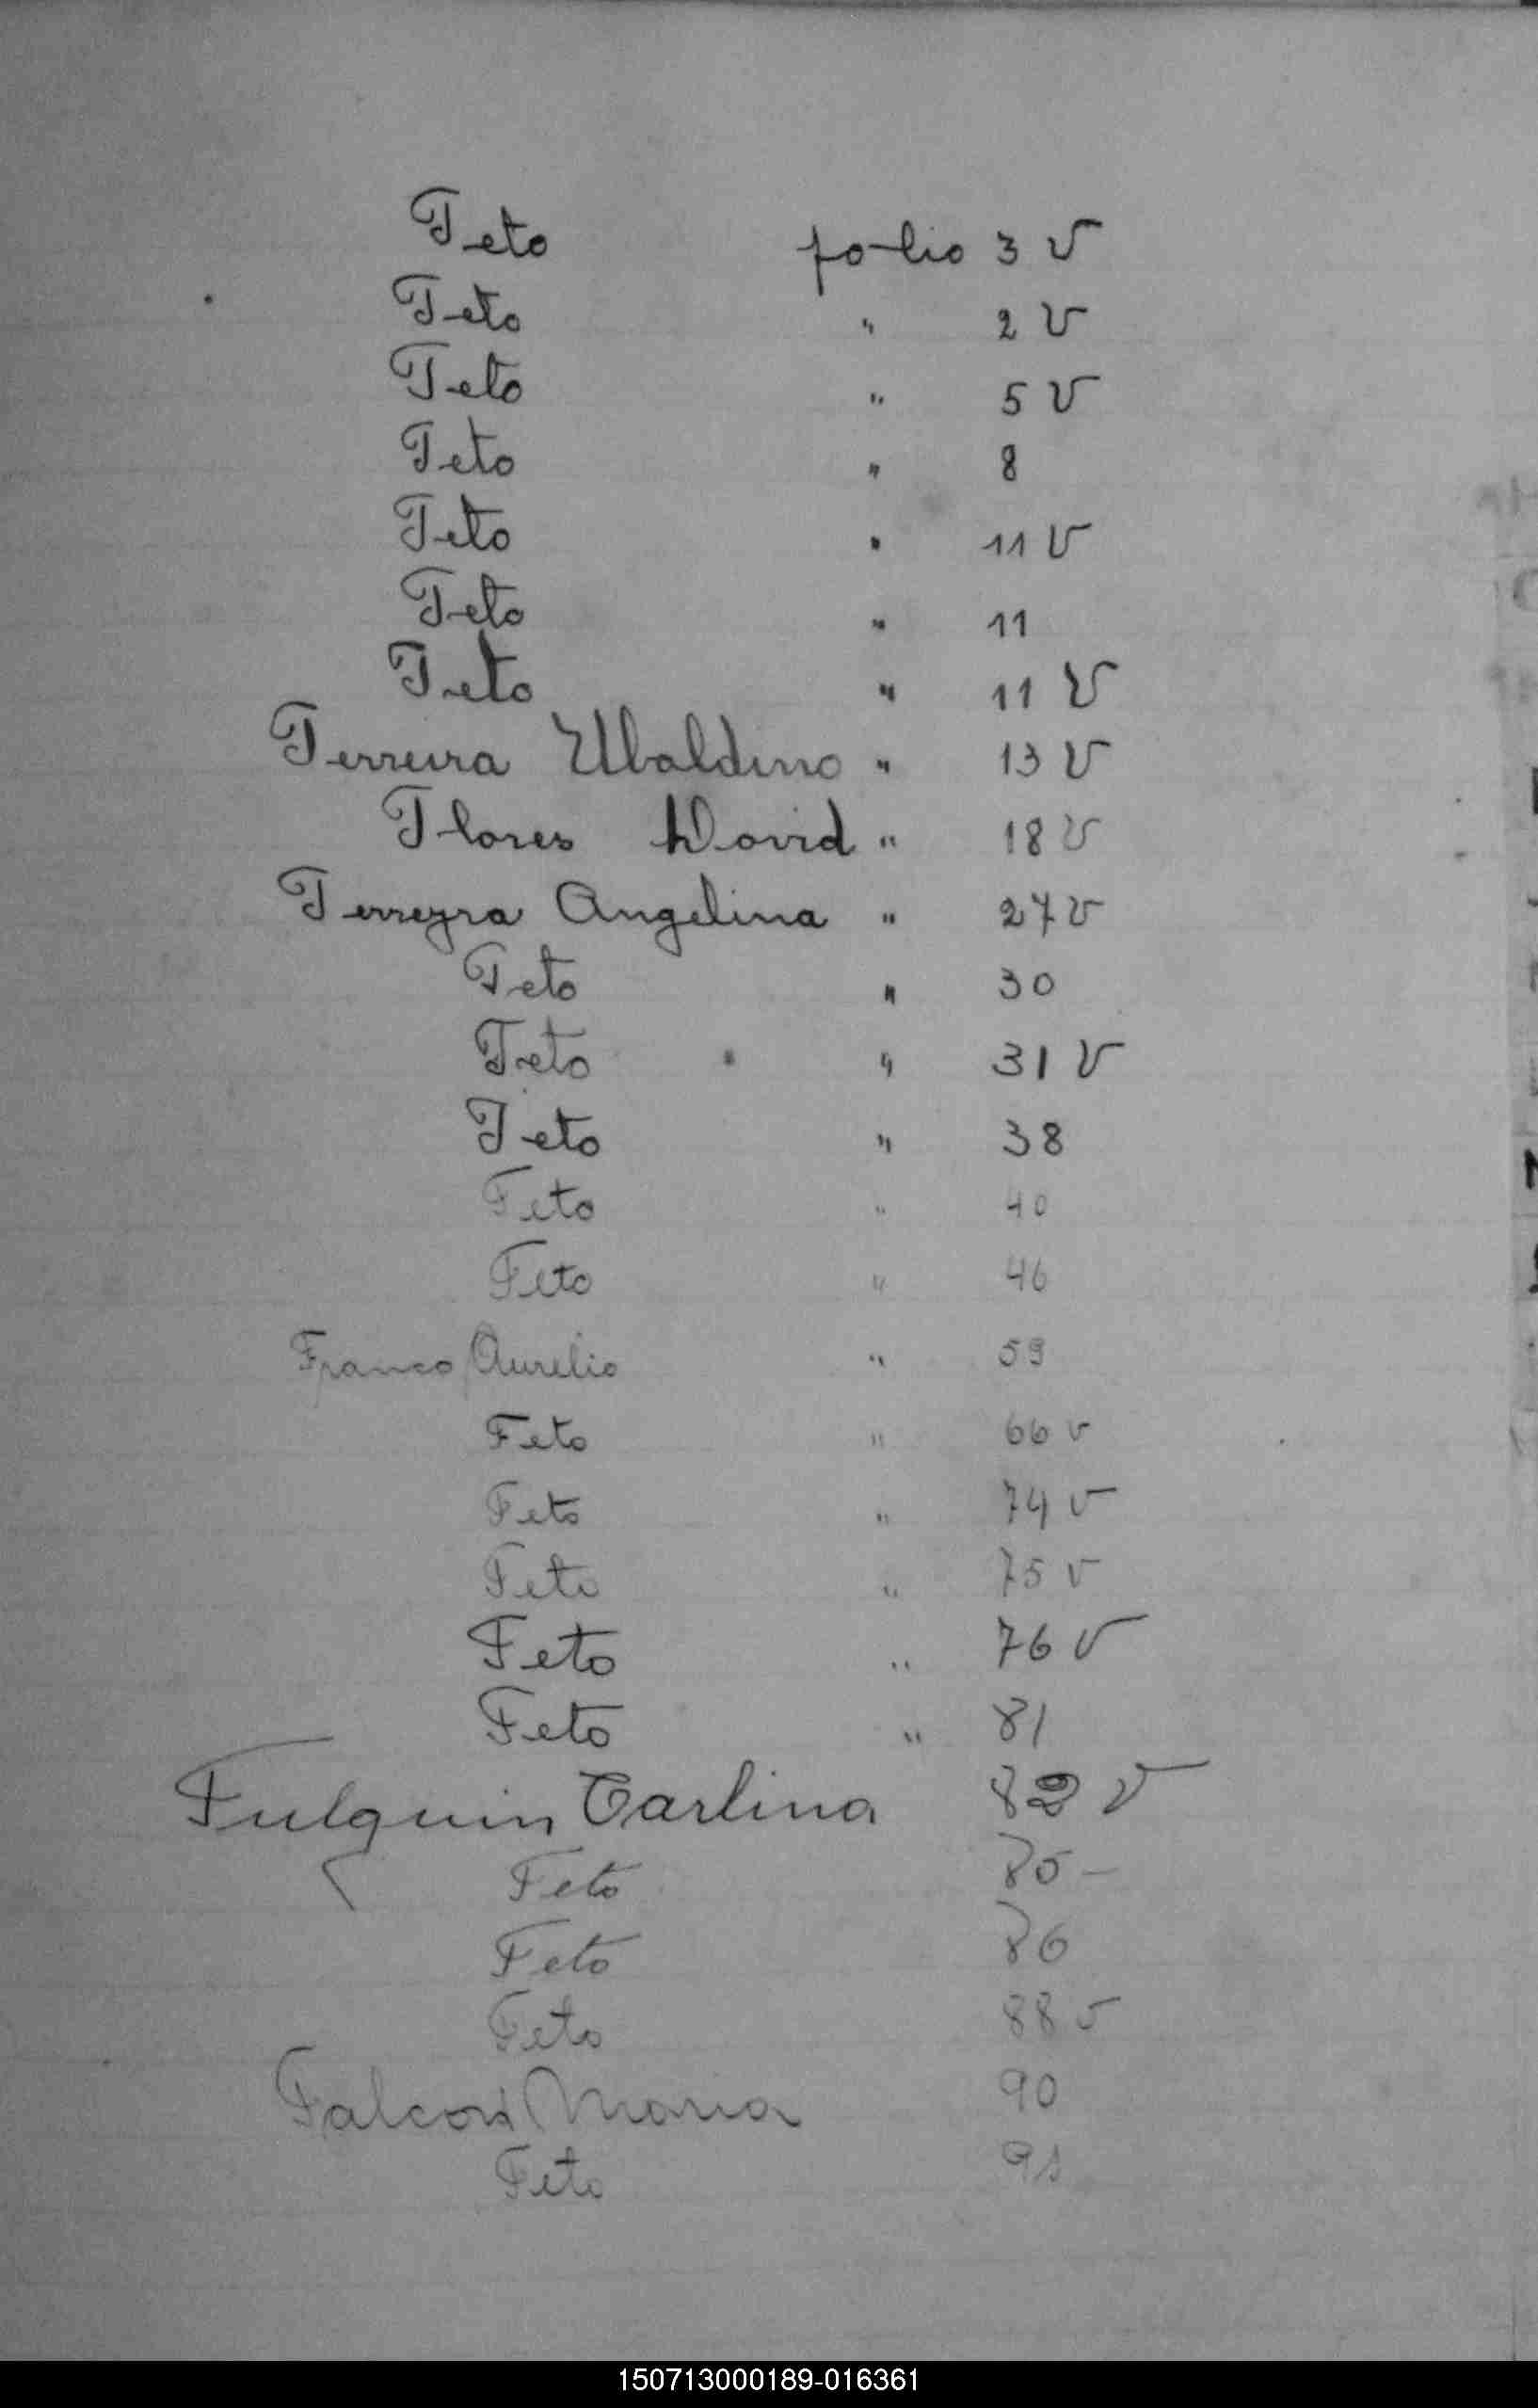 Feto folio 3 V
Feto " 2 V
Feto " 5 V
Feto " 8
Feto " 11 V
Feto " 11
Feto " 11 V
Ferreira Ubaldino " 13 V
Flores David " 18 V
Ferreyra Angelina " 27 V
Feto " 30
Feto " 31 V
Feto " 38
Feto " 40
Feto " 46
Franco Aurelio " 59
Feto " 66 v
Feto " 74 v
Feto " 75 v
Feto " 76 v
Feto " 81
Fulquin Carlina 82 v
Feto 85
Feto 86
Feto 88 v
Falcon Maria 90
Feto 91
150713000189-016361